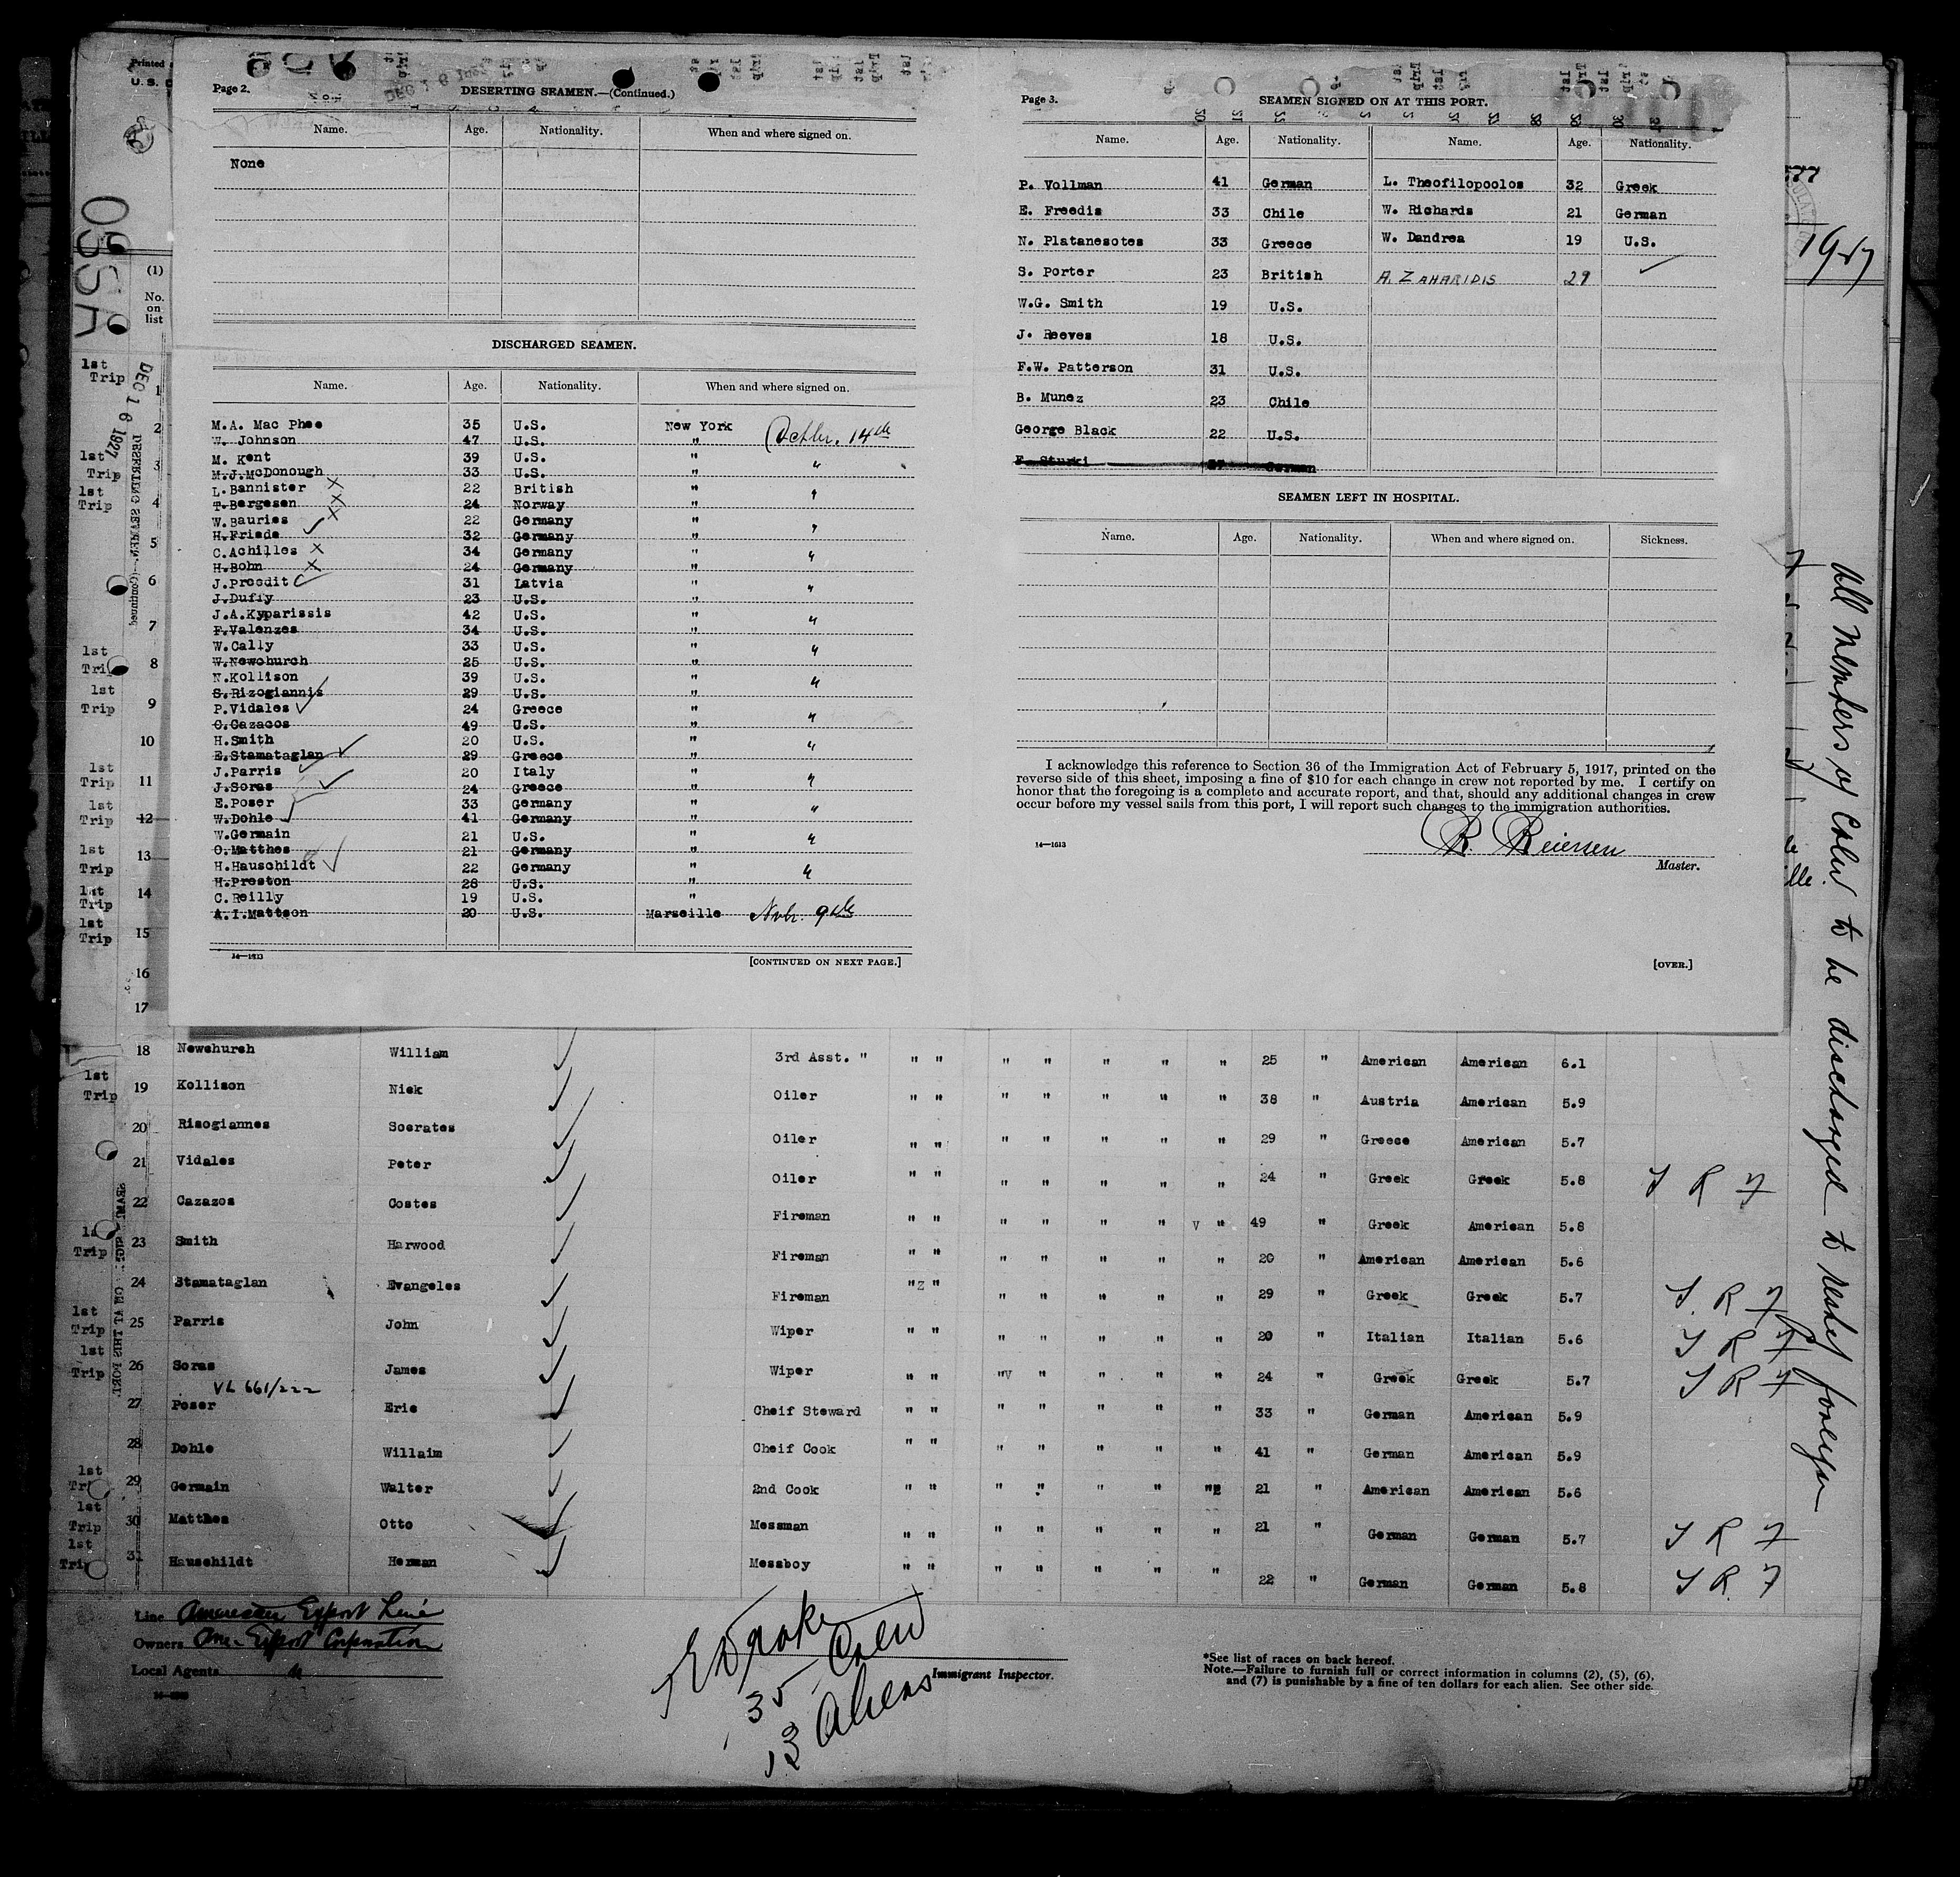 Page 2.
DESERTING SEAMEN.—(Continued.)
Name. Age. Nationality. When and where signed on.
None
DISCHARGED SEAMEN.
Name. Age. Nationality. When and where signed on.
M.A. Mac Phee 35 U.S. New York Octbr. 14th
W. Johnson 47 U.S. "
M. Kent 39 U.S. " "
M.J.McDonough 33 U.S. "
L.Bannister X 22 British " "
T.Bergesen X 24 Norway "
W.Bauries X 22 Germany " "
H.Friede ✓ 32 Germany "
C.Achilles X 34 Germany " "
H.Bohn X 24 Germany "
J.Preedit ✓ 31 Latvia " "
J.Dufly 23 U.S. "
J.A.Kyparissis 42 U.S. " "
F.Valenzes 34 U.S. "
W.Cally 33 U.S. " "
W.Newchurch 25 U.S. "
N.Kollison 39 U.S. " "
S.Rizogiannis 29 U.S. "
P.Vidales ✓ 24 Greece " "
C.Cazacos 49 U.S. "
H.Smith 20 U.S. " "
E.Stamataglan ✓ 29 Greece "
J.Parris ✓ 20 Italy " "
J.Soras ✓ 24 Greece "
E.Poser 33 Germany " "
W.Dohle 41 Germany "
W.Germain 21 U.S. " "
O.Matthes 21 Germany "
H.Hauschildt ✓ 22 Germany " "
H.Preston 28 U.S. "
C.Reilly 19 U.S. "
A.I.Mattson 20 U.S. Marseille Nvbr. 9th
14—1613
[CONTINUED ON NEXT PAGE.]
Page 3.
SEAMEN SIGNED ON AT THIS PORT.
Name. Age. Nationality. Name. Age. Nationality.
P. Vollman 41 German L. Theofilopoolos 32 Greek
E. Freedis 33 Chile W. Richards 21 German
N. Platanesotes 33 Greece W. Dandrea 19 U.S.
S. Porter 23 British A. ZAHARIDIS 29 ✓
W.G. Smith 19 U.S.
J. Reeves 18 U.S.
F.W. Patterson 31 U.S.
B. Munez 23 Chile
George Black 22 U.S.
F. Sturki German
SEAMEN LEFT IN HOSPITAL.
Name. Age. Nationality. When and where signed on. Sickness.
I acknowledge this reference to Section 36 of the Immigration Act of February 5, 1917, printed on the
reverse side of this sheet, imposing a fine of $10 for each change in crew not reported by me. I certify on
honor that the foregoing is a complete and accurate report, and that, should any additional changes in crew
occur before my vessel sails from this port, I will report such changes to the immigration authorities.
14—1613
R. Reiersen
Master.
[OVER.]
Printed
U.S.
(1)
No.
on
list
DEC 16 1927
1st Trip 1
2
1st Trip 3
1st Trip 4
5
6
7
1st Trip 8
1st Trip 9
10
1st Trip 11
1st Trip 12
1st Trip 13
1st Trip 14
1st Trip 15
16
17
18 Newchurch William ✓ 3rd Asst. " " " " " " " " 25 " American American 6.1
1st Trip 19 Kollison Nick ✓ Oiler " " " " " " " 38 " Austria American 5.9
20 Risogiannes Socrates ✓ Oiler " " " " " " " 29 " Greece American 5.7
21 Vidales Peter ✓ Oiler " " " " " " " 24 " Greek Greek 5.8 S R 7
22 Cazazos Costes ✓ Fireman " " " " " " V " 49 " Greek American 5.8
1st Trip 23 Smith Harwood ✓ Fireman " " " " " " " 20 " American American 5.6
24 Stamataglan Evangeles ✓ Fireman "Z " " " " " " 29 " Greek Greek 5.7 S. R 7
1st Trip 25 Parris John ✓ Wiper " " " " " " " 20 " Italian Italian 5.6 S R 7
1st Trip 26 Soras James ✓ Wiper " " "V " " " " 24 " Greek Greek 5.7 S R 7
VL 661/222
27 Poser Eric ✓ Cheif Steward " " " " " " " 33 " German American 5.9
28 Dohle Willaim ✓ Cheif Cook " " " " " " " 41 " German American 5.9
1st Trip 29 Germain Walter ✓ 2nd Cook " " " " " " " 21 " American American 5.6
1st Trip 30 Matthes Otto ✓ Messman " " " " " " " 21 " German German 5.7 S R 7
1st Trip 31 Hauschildt Herman ✓ Messboy " " " " " " " 22 " German German 5.8 S R 7
All Members of Crew to be discharged to reship foreign
Line American Export Line
Owners Am. Export Corporation
Local Agents "
35 Crew
13 Aliens
Immigrant Inspector.
*See list of races on back hereof.
Note.—Failure to furnish full or correct information in columns (2), (5), (6),
and (7) is punishable by a fine of ten dollars for each alien. See other side.